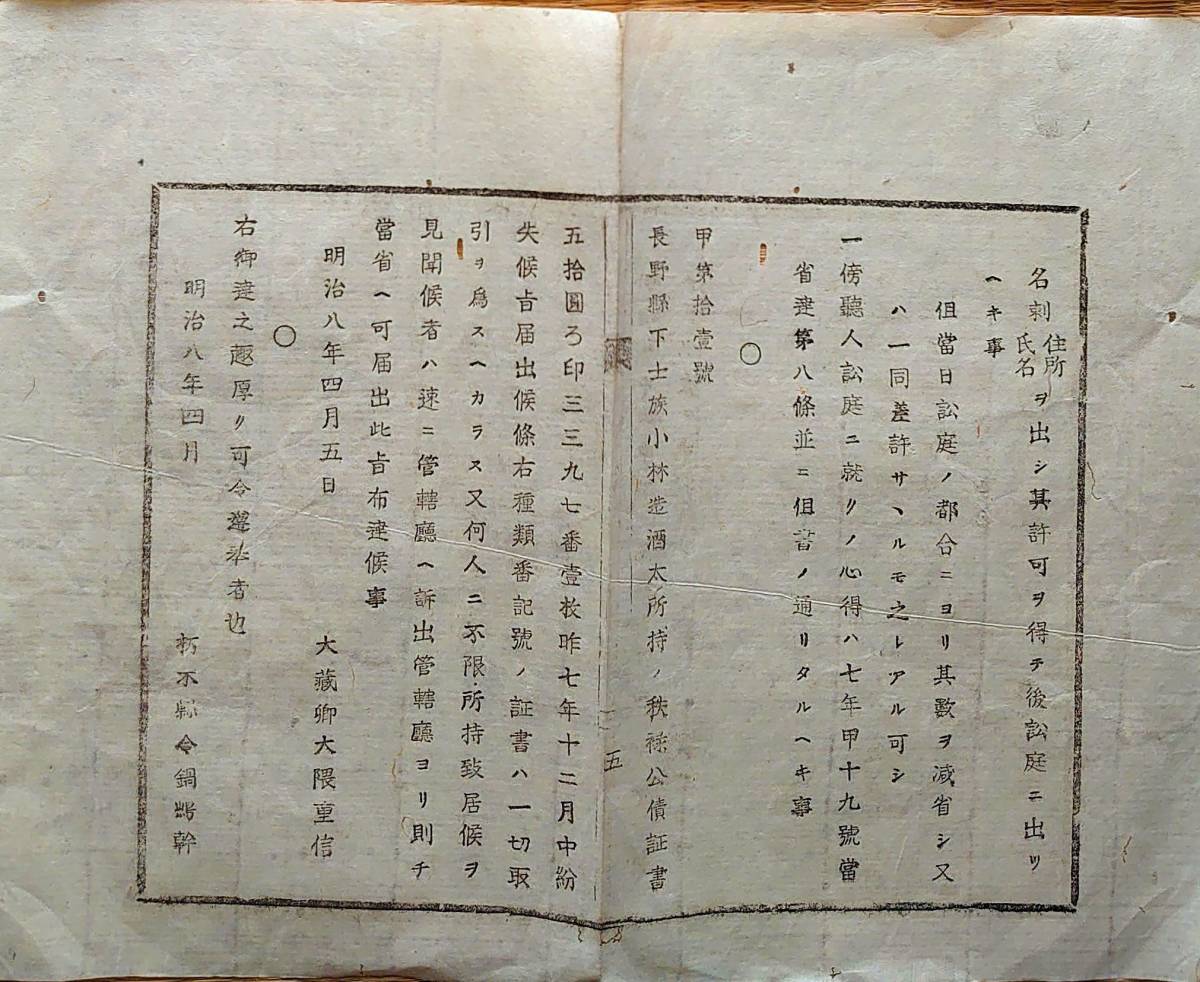 名刺住所氏名ヲ出シ其許可ヲ得テ後訟庭ニ出ツ
ヘキ事
但當日訟庭ノ都合ニヨリ其數ヲ减省シ又
ハ一同差許サヽルモ之レアル可シ
一傍聽人訟庭ニ就クノ心得ハ七年甲十九號當
省達第八條並ニ但書ノ通リタルヘキ事
〇
甲第拾壹號
長野縣下士族小林造酒太所持ノ秩祿公債証書
五
五拾圓ろ印三三九七番壹枚昨七年十二月中紛
失候旨届出候條右種類番記號ノ証書ハ一切取
引ヲ爲スヘカラス又何人ニ不限所持致居候ヲ
見聞候者ハ速ニ管轄廳ヘ訴出管轄廳ヨリ則チ
當省ヘ可届出此旨布達候事
明治八年四月五日
大藏卿大隈重信
〇
右御達之趣厚ク可令遵奉者也
明治八年四月
栃木縣令鍋島幹